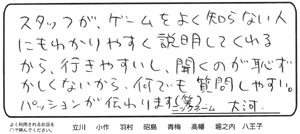 スタッフが、ゲームをよく知らない人
にもわかりやすく説明してくれる
から、行きやすいし、聞くのが恥ず
かしくないから、何でも質問しやすい。
パッションが伝わります(笑)
ニックネーム 大河
よく利用されるお店を
○で囲んでください。
立川 小作 羽村 昭島 青梅 高幡 堀之内 八王子